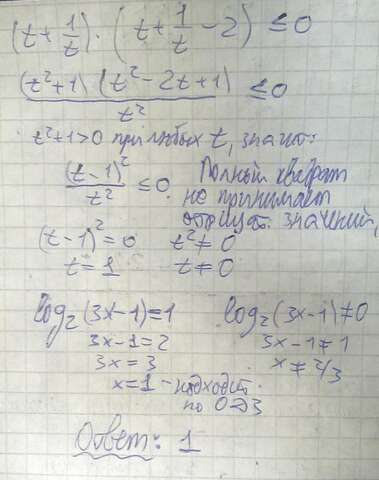 (t + 1/t) · (t + 1/t - 2) ≤ 0
(t²+1)(t²-2t+1)/t² ≤ 0
t²+1>0 при любых t, значит:
(t-1)²/t² ≤ 0 Полный квадрат
не принимает
отрицат. значений,
(t-1)²=0 t²≠0
t=1 t≠0
log₂(3x-1)=1 log₂(3x-1)≠0
3x-1=2 3x-1≠1
3x=3 x≠2/3
x=1 - подходит
по ОДЗ
Ответ: 1